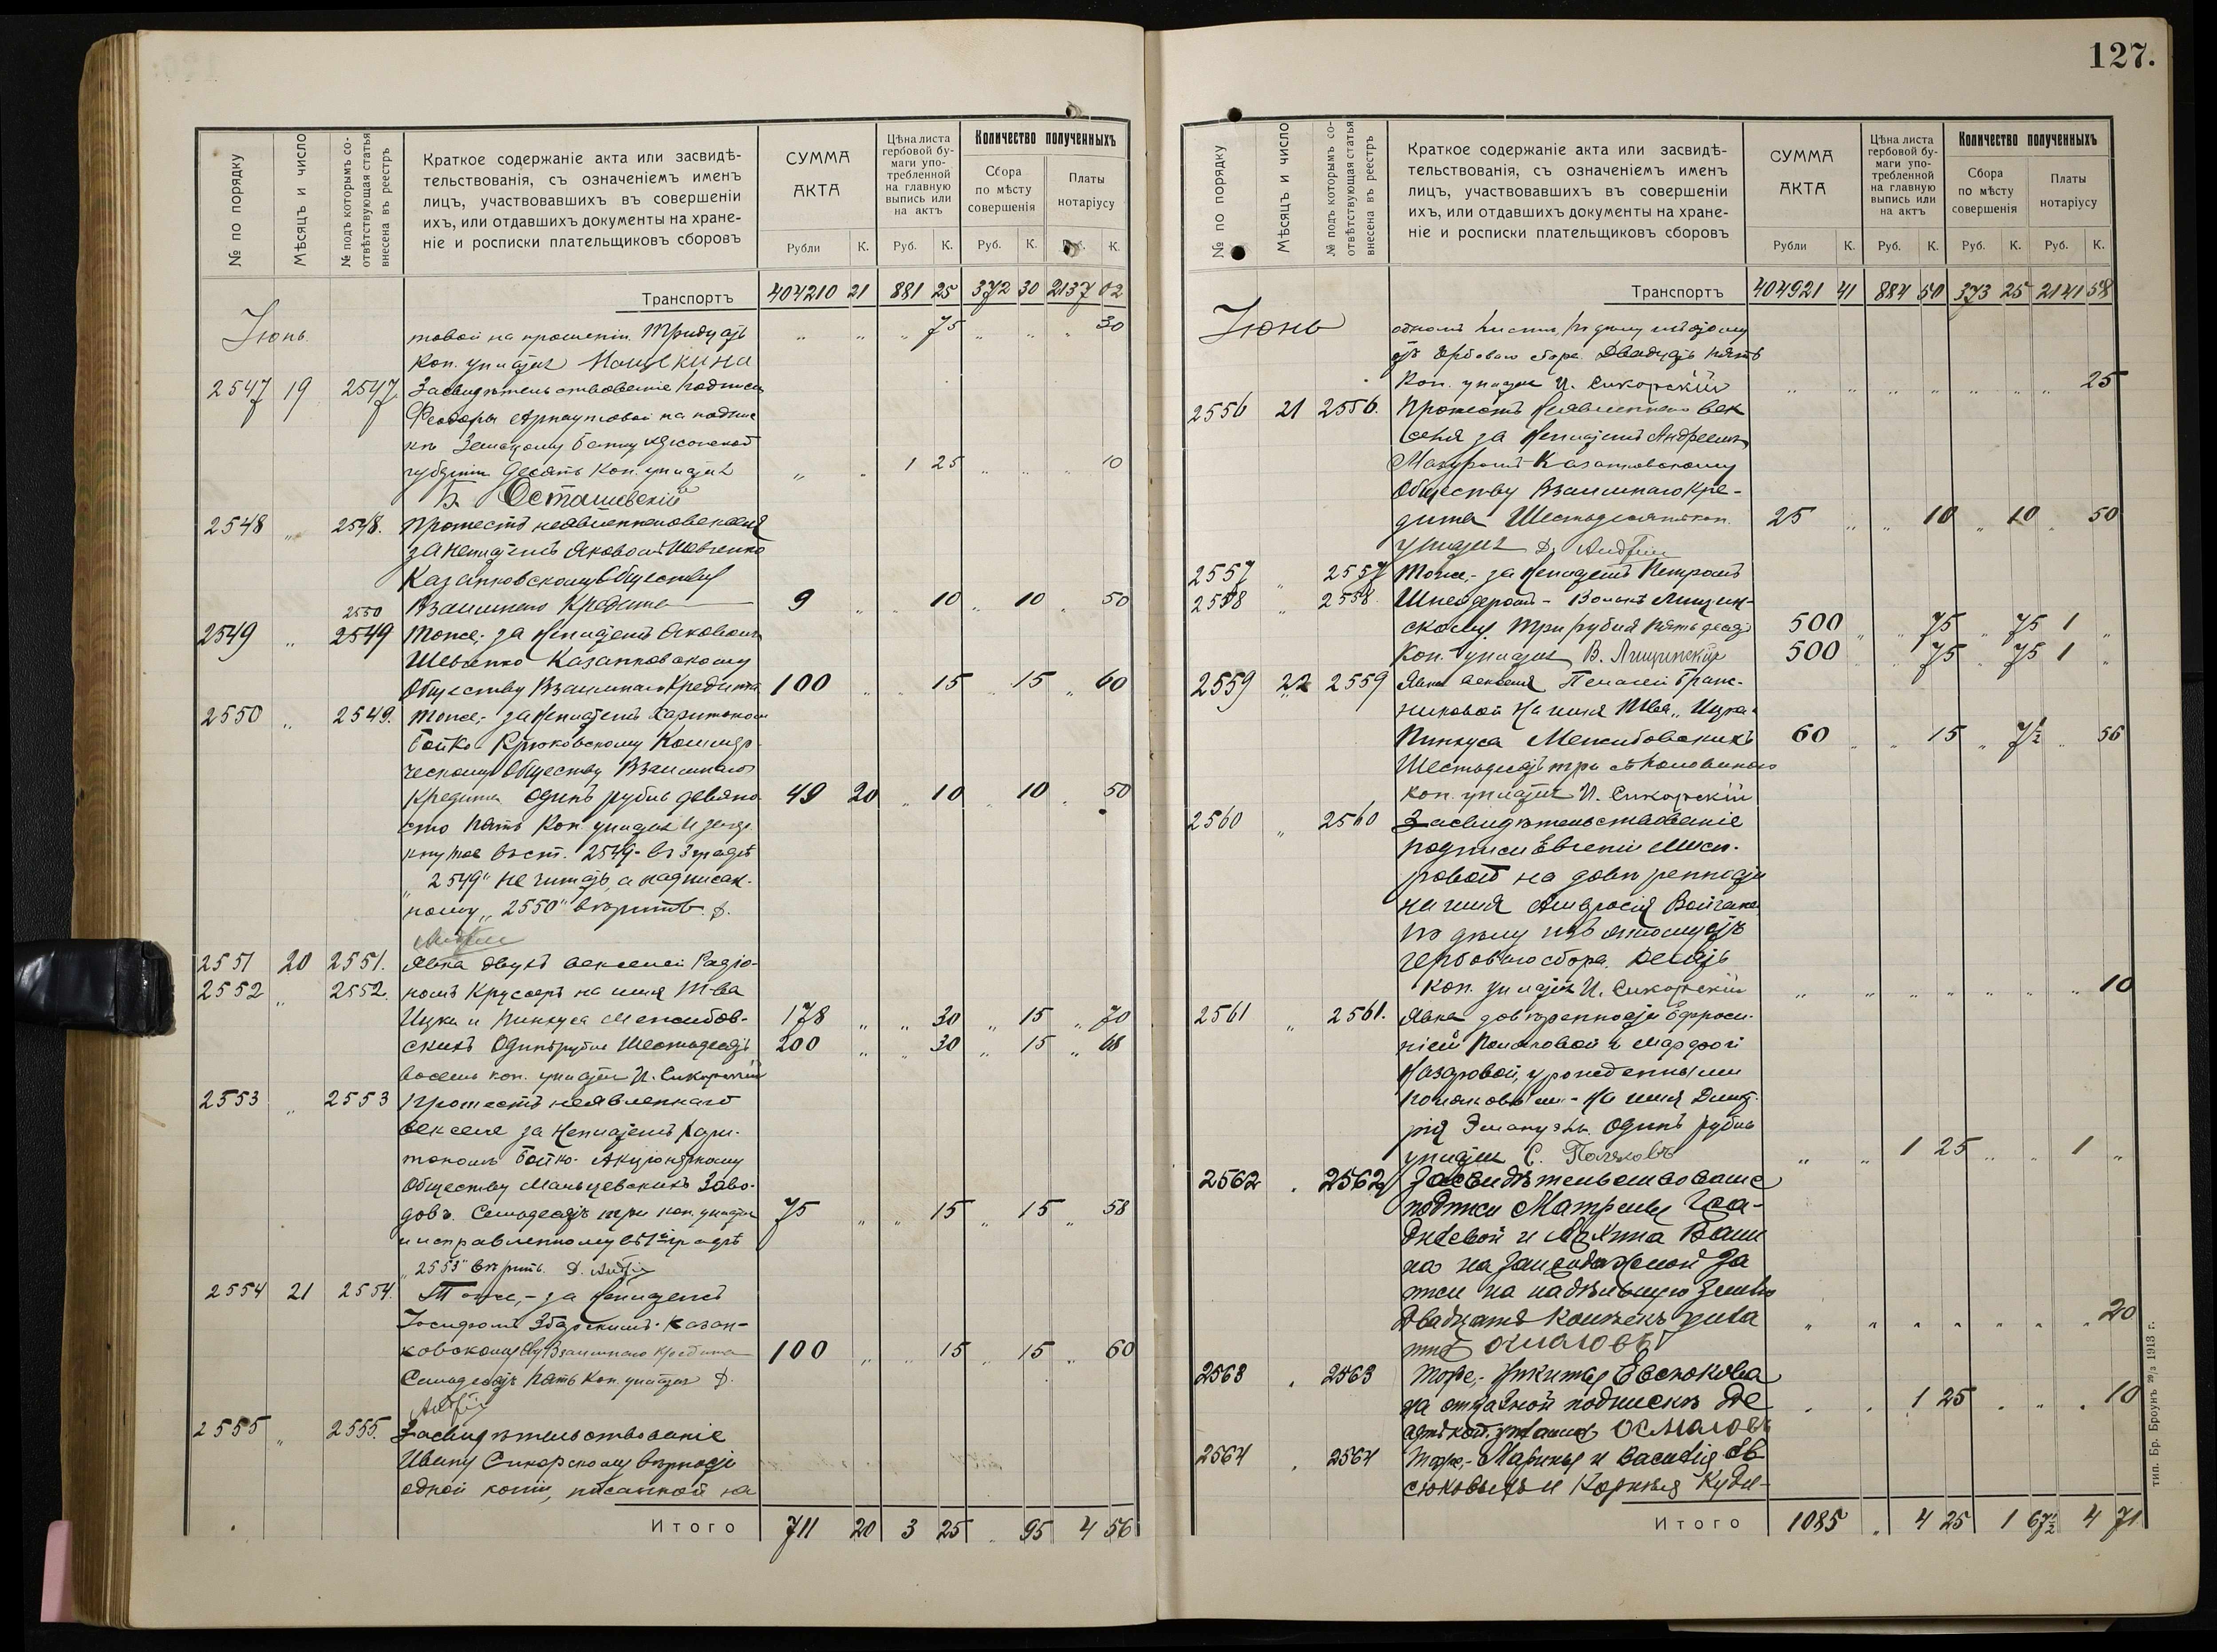 127.
№ по порядку
Мѣсяцъ и число
№ подъ которымъ со-
отвѣтствующая статья
внесена въ реестръ
Краткое содержаніе акта или засвидѣ-
тельствованія, съ означеніемъ именъ
лицъ, участвовавшихъ въ совершеніи
ихъ, или отдавшихъ документы на хране-
ніе и росписки плательщиковъ сборовъ
СУММА
АКТА
Рубли К.
Цѣна листа
гербовой бу-
маги упо-
требленной
на главную
выпись или
на актъ
Руб. К.
Количество полученныхъ
Сбора
по мѣсту
совершенія
Руб. К.
Платы
нотаріусу
К.
Транспортъ 404210 21 881 25 372 30 2137 02
Іюнь. товой на прошеніи Тридцать „ „ „ 75 „ „ „ 30
Коп. уплатил
2547 19 2547 Засвидѣтельствованіе подписи
Феодоры Арнаутовой на подпис
къ Земскому банку Херсонской
губерніи Десять Коп. уплатил „ „ 1 25 „ „ „ 10
Осташевскій
2548 „ 2548. Протестъ неявленнаго векселя
за неплатежъ Яковомъ Шевченко
Казанковскому Обществу
2550 Взаимнаго Кредита 9 „ „ 10 „ 10 „ 50
2549 „ 2549 Тоже,- за неплатежъ Яковомъ
Шевченко Казанковскому
Обществу Взаимнаго Кредита 100 „ „ 15 „ 15 „ 60
2550 „ 2549. Тоже,- за неплатежъ Харитоном
Бойко Крюковскому Коммер-
ческому Обществу Взаимнаго
Кредита Одинъ рубль девяно- 49 20 „ 10 „ 10 „ 50
сто пять Коп. уплатил и зачер-
кнутое въ ст. 2549 - въ 3 графѣ
„2549" не читать, а надписан-
ному „2550" вѣрить. Д.
2551 20 2551. Явка двухъ векселей
2552 „ 2552. номъ Круссеръ на имя Т-ва
Ицки и Пинкуса Межибов- 178 „ „ 30 „ 15 „ 70
скихъ Одинъ рубль Шестьдесятъ 200 „ „ 30 „ 15 „ 68
восемь коп. уплатил И. Сикорскій
2553 „ 2553 Протестъ неявленнаго
векселя за неплатежъ Хари-
тономъ Бойко - Акціонерному
Обществу Мальцевскихъ Заво-
довъ. Семьдесятъ три коп. уплатил 75 „ „ 15 „ 15 „ 58
и исправленному въ 1й графѣ
„2553" вѣрить. Д.
2554 21 2554. Тоже,- за неплатежъ
Іосифомъ Збарскимъ - Казан-
ковскому Взаимнаго Кредита 100 „ „ 15 „ 15 „ 60
Семьдесятъ пять Коп. уплатил Д.
2555 „ 2555. Засвидѣтельствованіе
Ивану Сикорскому вѣрности
одной копіи, писанной на
Итого 711 20 3 25 „ 95 4 56
№ по порядку
Мѣсяцъ и число
№ подъ которымъ со-
отвѣтствующая статья
внесена въ реестръ
Краткое содержаніе акта или засвидѣ-
тельствованія, съ означеніемъ именъ
лицъ, участвовавшихъ въ совершеніи
ихъ, или отдавшихъ документы на хране-
ніе и росписки плательщиковъ сборовъ
СУММА
АКТА
Рубли К.
Цѣна листа
гербовой бу-
маги упо-
требленной
на главную
выпись или
на актъ
Руб. К.
Количество полученныхъ
Сбора
по мѣсту
совершенія
Руб. К.
Платы
нотаріусу
Руб. К.
Транспортъ 404921 41 884 50 373 25 2141 58
Іюнь одномъ листѣ, по дѣлу изъятому
отъ гербоваго сбора. Двадцать пять
Коп. уплатил И. Сикорскій „ „ „ „ „ „ „ 25
2556 21 2556. Протестъ неявленнаго век-
селя за неплатежъ Андреемъ
Мазуромъ - Казанковскому
Обществу Взаимнаго Кре-
дита Шестьдесятъ коп. 25 „ „ 10 „ 10 „ 50
уплатил Д.
2557 „ 2557 Тоже,- за неплатежъ Петромъ
2558 „ 2558.
скому. Три рубля пятьдесят 500 „ „ 75 „ 75 1 „
Коп. уплатил В. Лищинскій 500 „ „ 75 „ 75 1 „
2559 22 2559 Явка векселя Пелагеи
никовой на имя Т-ва „Ицка-
Пинкуса Межибовскихъ 60 „ „ 15 „ 7½ „ 56
Шестьдесятъ три съ половиною
коп. уплатил И. Сикорскій
2560 „ 2560 Засвидѣтельствованіе
подписи Евгеніи
ровой на довѣренности
на имя Амвросія
по дѣлу изъятому отъ
гербоваго сбора. Десять
коп. уплатил И. Сикорскій „ „ „ „ „ „ „ 10
2561 „ 2561. Явка довѣренности Ефроси-
ніей Поляковой и Марфой
Назаровой, урожденными
Поляковыми - на имя Дмит-
рія Эмануэль. Одинъ рубль
уплатил С. Поляковъ „ „ 1 25 „ „ 1 „
2562 . 2562 Засвидѣтельствованіе
подписи Матрены
на надѣльную землю
Двадцать копѣекъ упла „ „ „ „ „ „ „ 20
тил
2563 . 2563 Тоже,- Никиты Евсюкова
на отказной подпискѣ Де . . 1 25 . „ . 10
сять коп. уплатил
2564 . 2564 Тоже,- Марины и Василія Ев
сюковыхъ и Корнѣя
Итого 1085 „ 4 25 1 67½ 4 71
тип. Бр. Броунъ 20/3 1913 г.